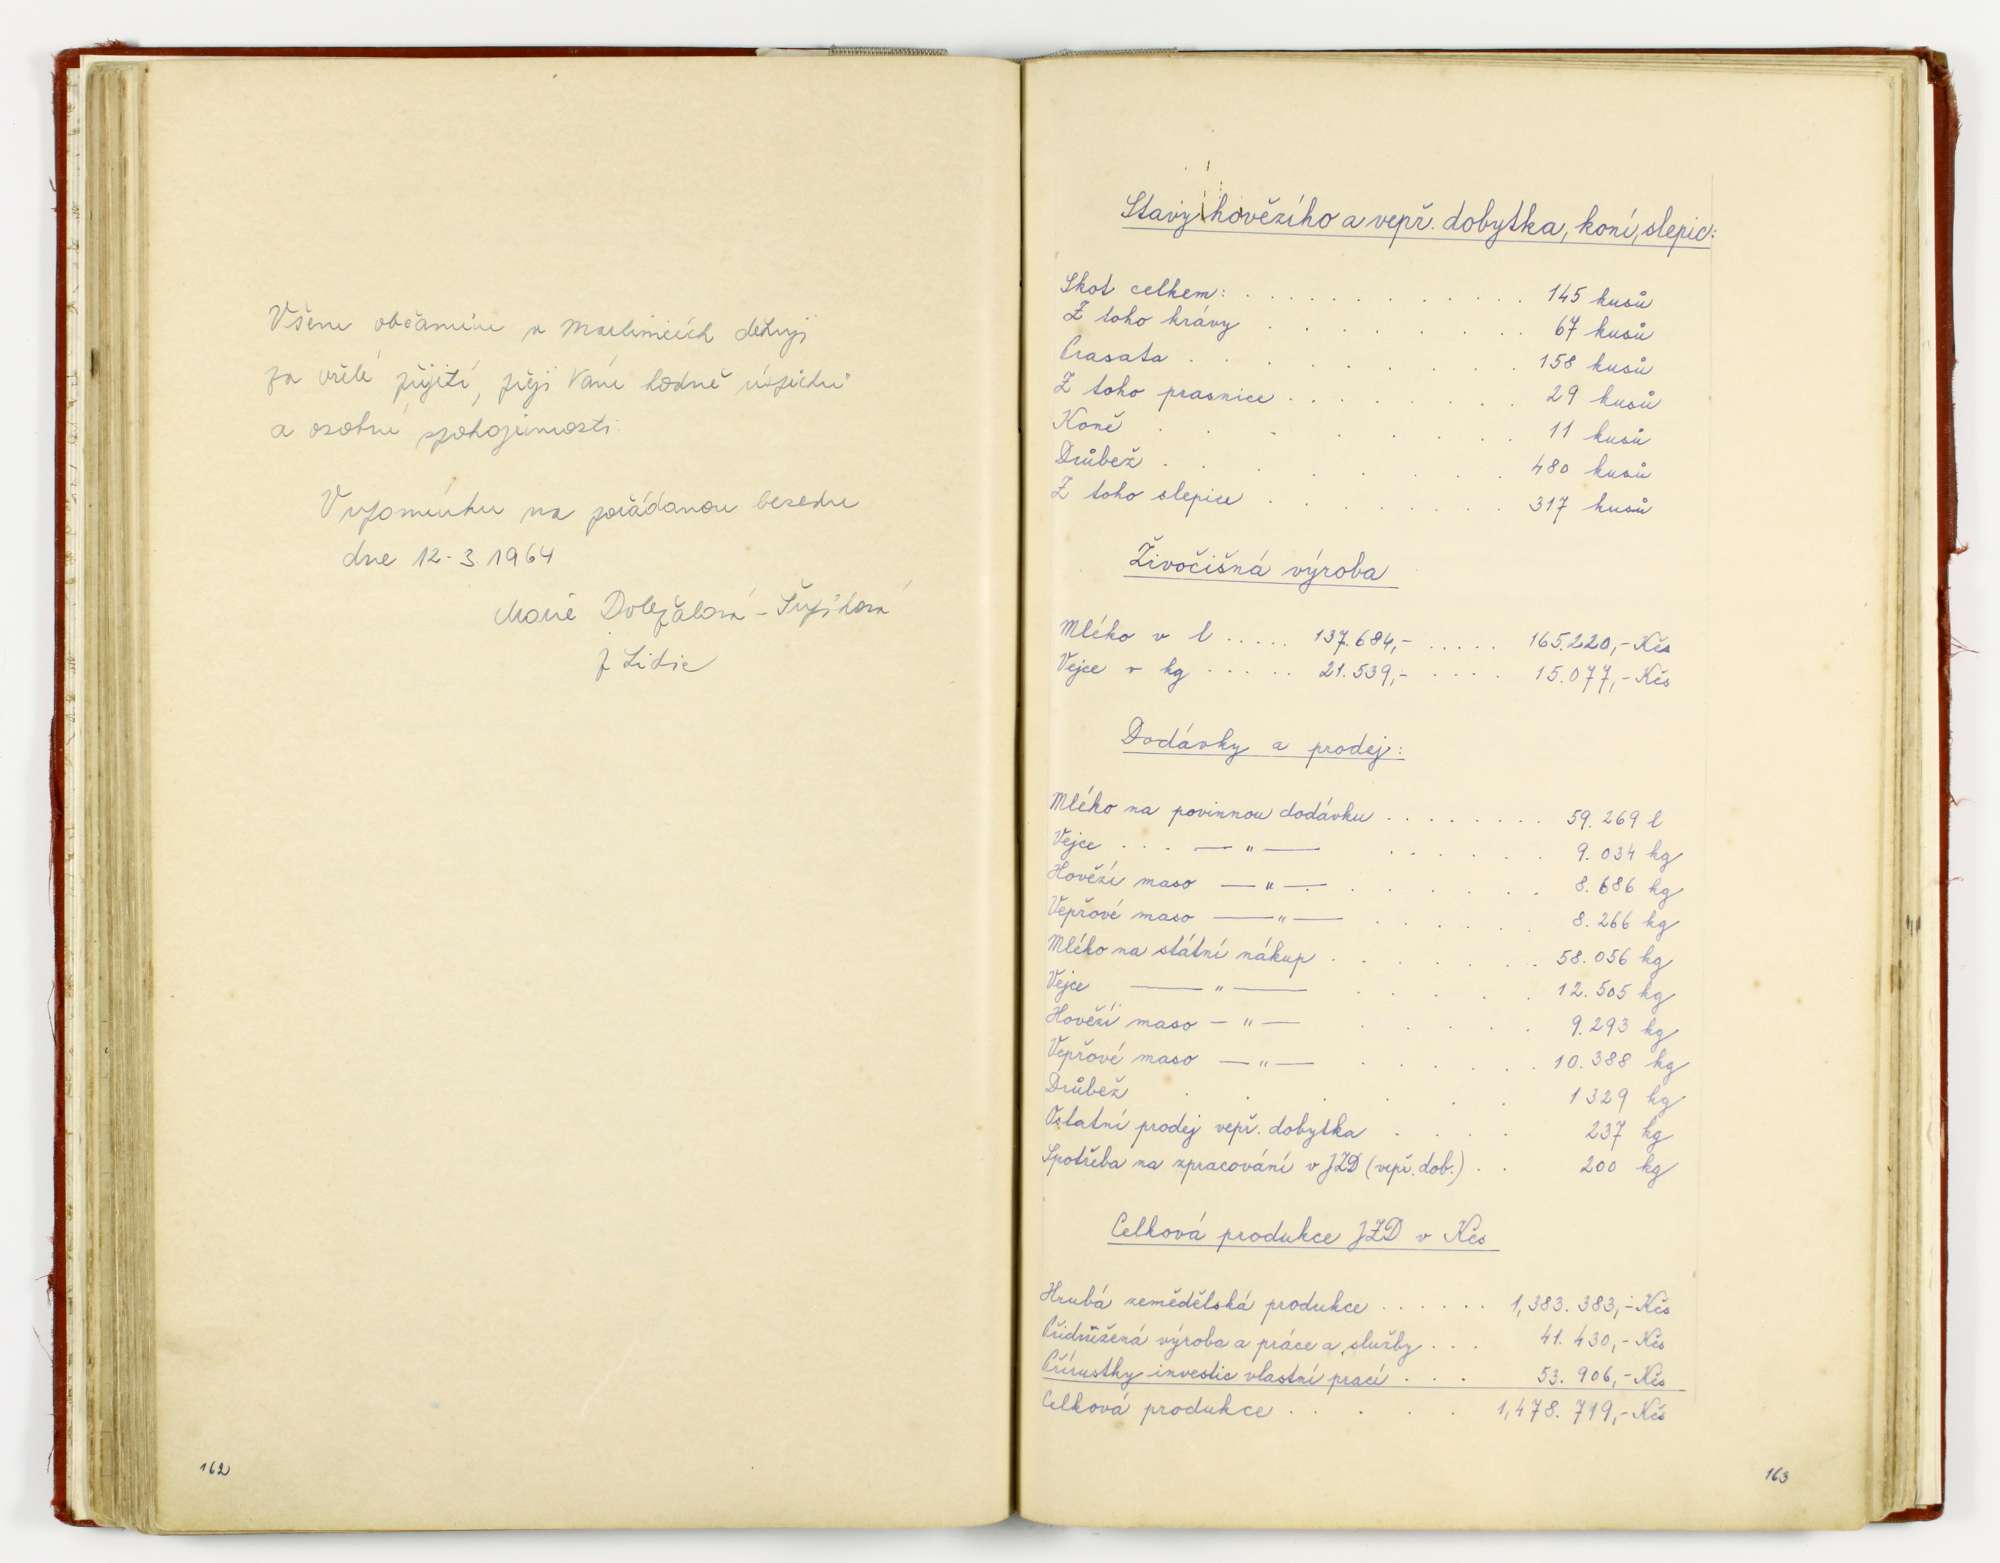 Všem občanům v děkuji
za vřelé přijetí, přeji Vám hodně úspěchů
a osobní spokojenosti.
Vzpomínku na pořádanou besedu
dne 12-3 1964
Marie Doležalová - Šupíková
z Lidic
162
Stavy hovězího a vepř. dobytka, koní, slepic:
Skot celkem: . . . . . . . . . . . . 145 kusů
Z toho krávy . . . . . . . . 67 kusů
Prasata . . . . . . . . . 158 kusů
Z toho prasnice . . . . . . . . 29 kusů
Koně . . . . . . . . 11 kusů
Drůbež . . . . . . . . 480 kusů
Z toho slepice . . . . . . . 317 kusů
Živočišná výroba
Mléko v l . . . . . 137.684,- . . . . . 165.220,- Kčs
Vejce v kg . . . . . 21.539,- . . . . 15.077,- Kčs
Dodávky a prodej:
Mléko na povinnou dodávku . . . . . . . . 59.269 l
Vejce . . . — " — . . . . . 9.034 kg
Hovězí maso — " — . . . . . . 8.686 kg
Vepřové maso — " — . . . . . . 8.266 kg
Mléko na státní nákup . . . . . . . 58.056 kg
Vejce — " — . . . . . 12.505 kg
Hovězí maso — " — . . . . . 9.293 kg
Vepřové maso — " — . . . . . . 10.388 kg
Drůbež . . . . . . . 1329 kg
Ostatní prodej vepř. dobytka . . . . 237 kg
Spotřeba na zpracování v JZD (vepř. dob.) . . 200 kg
Celková produkce JZD v Kčs
Hrubá zemědělská produkce . . . . . . 1,383.383,- Kčs
Přidružená výroba a práce a služby . . . 41.430,- Kčs
Přírustky investic vlastní prací . . . 53.906,- Kčs
Celková produkce . . . . . 1,478.719,- Kčs
163